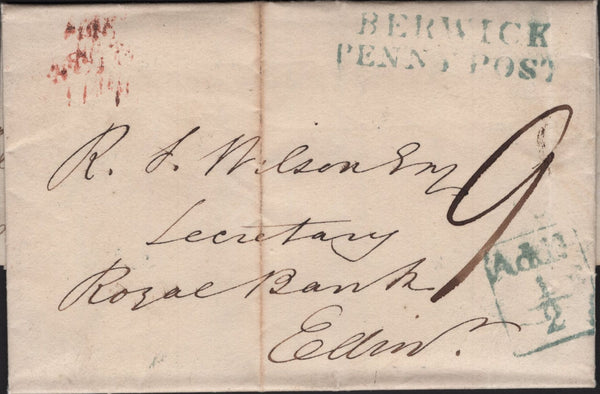 BERWICK
PENNY POST
R. S. Wilson Esq
9
Secretary
Royal Bank
Edinr.
Addl
1
2